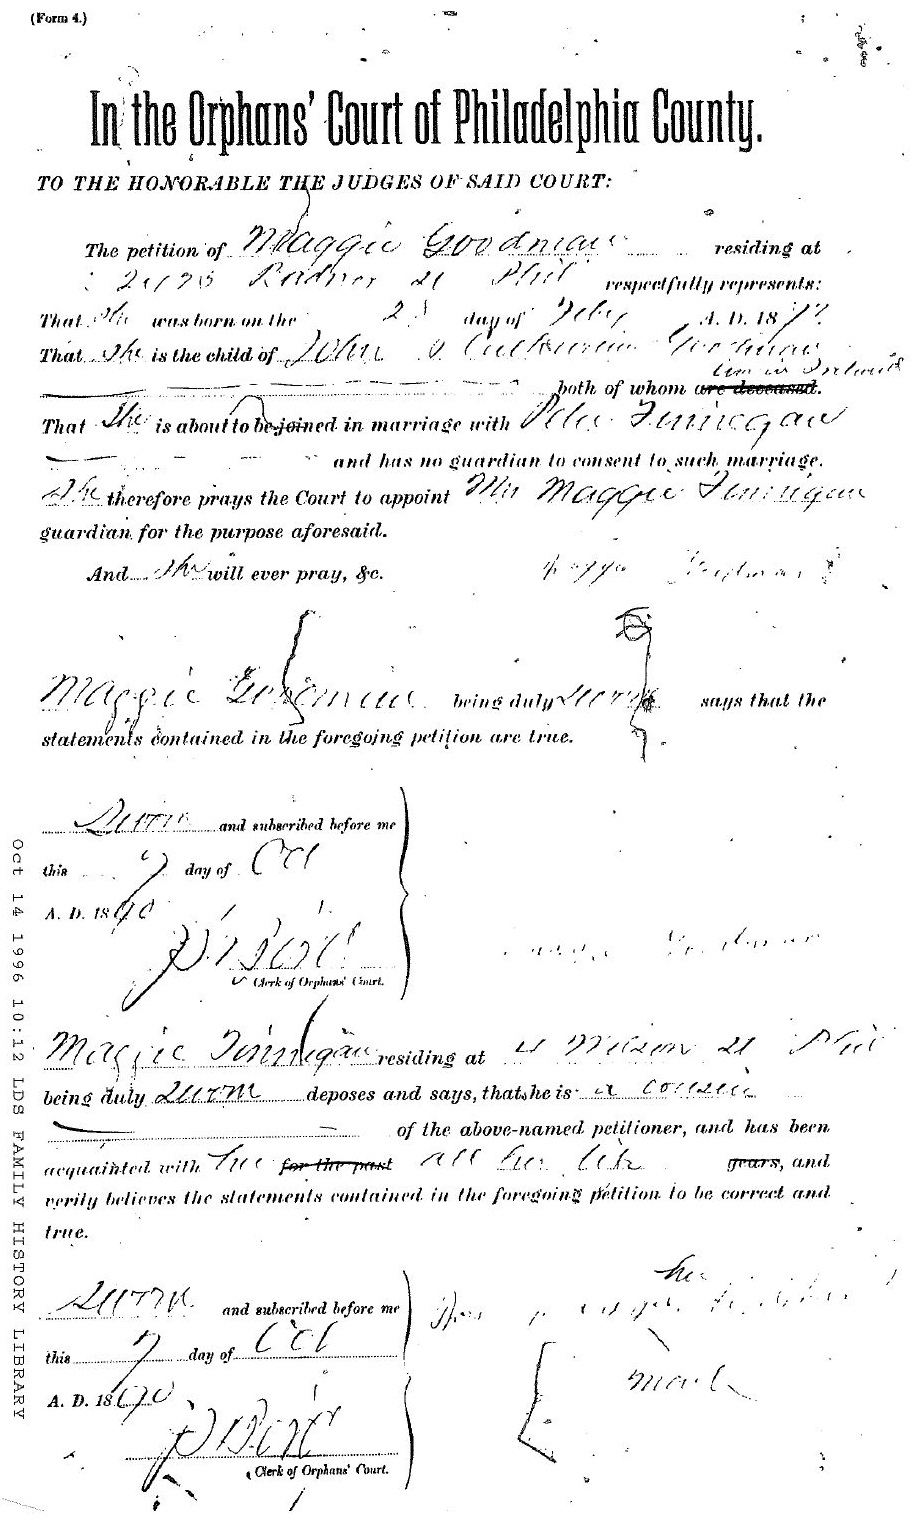 (Form 4.)
In the Orphans' Court of Philadelphia County.
TO THE HONORABLE THE JUDGES OF SAID COURT:
The petition of Maggie Goodman residing at
Radnor St Phil respectfully represents:
That she was born on the day of Feby A. D. 18
That she is the child of John & Goodman
live in Ireland
both of whom are deceased.
That She is about to be joined in marriage with Peter Finnegan
and has no guardian to consent to such marriage.
She therefore prays the Court to appoint Mrs Maggie Finnigan
guardian for the purpose aforesaid.
And She will ever pray, &c. Maggie Goodman
Maggie Goodman being duly sworn says that the
statements contained in the foregoing petition are true.
Sworn and subscribed before me
this 7 day of Oct
A. D. 1890
Clerk of Orphans' Court.
Maggie Goodman
Maggie Finnigan residing at 4 Wilson St Phil
being duly sworn deposes and says, that she is a cousin
of the above-named petitioner, and has been
acquainted with her for the past all her life years, and
verily believes the statements contained in the foregoing petition to be correct and
true.
her
Sworn and subscribed before me Mrs
this 7 day of Oct
mark
A. D. 1890
Clerk of Orphans' Court.
Oct 14 1996 10:12 LDS FAMILY HISTORY LIBRARY